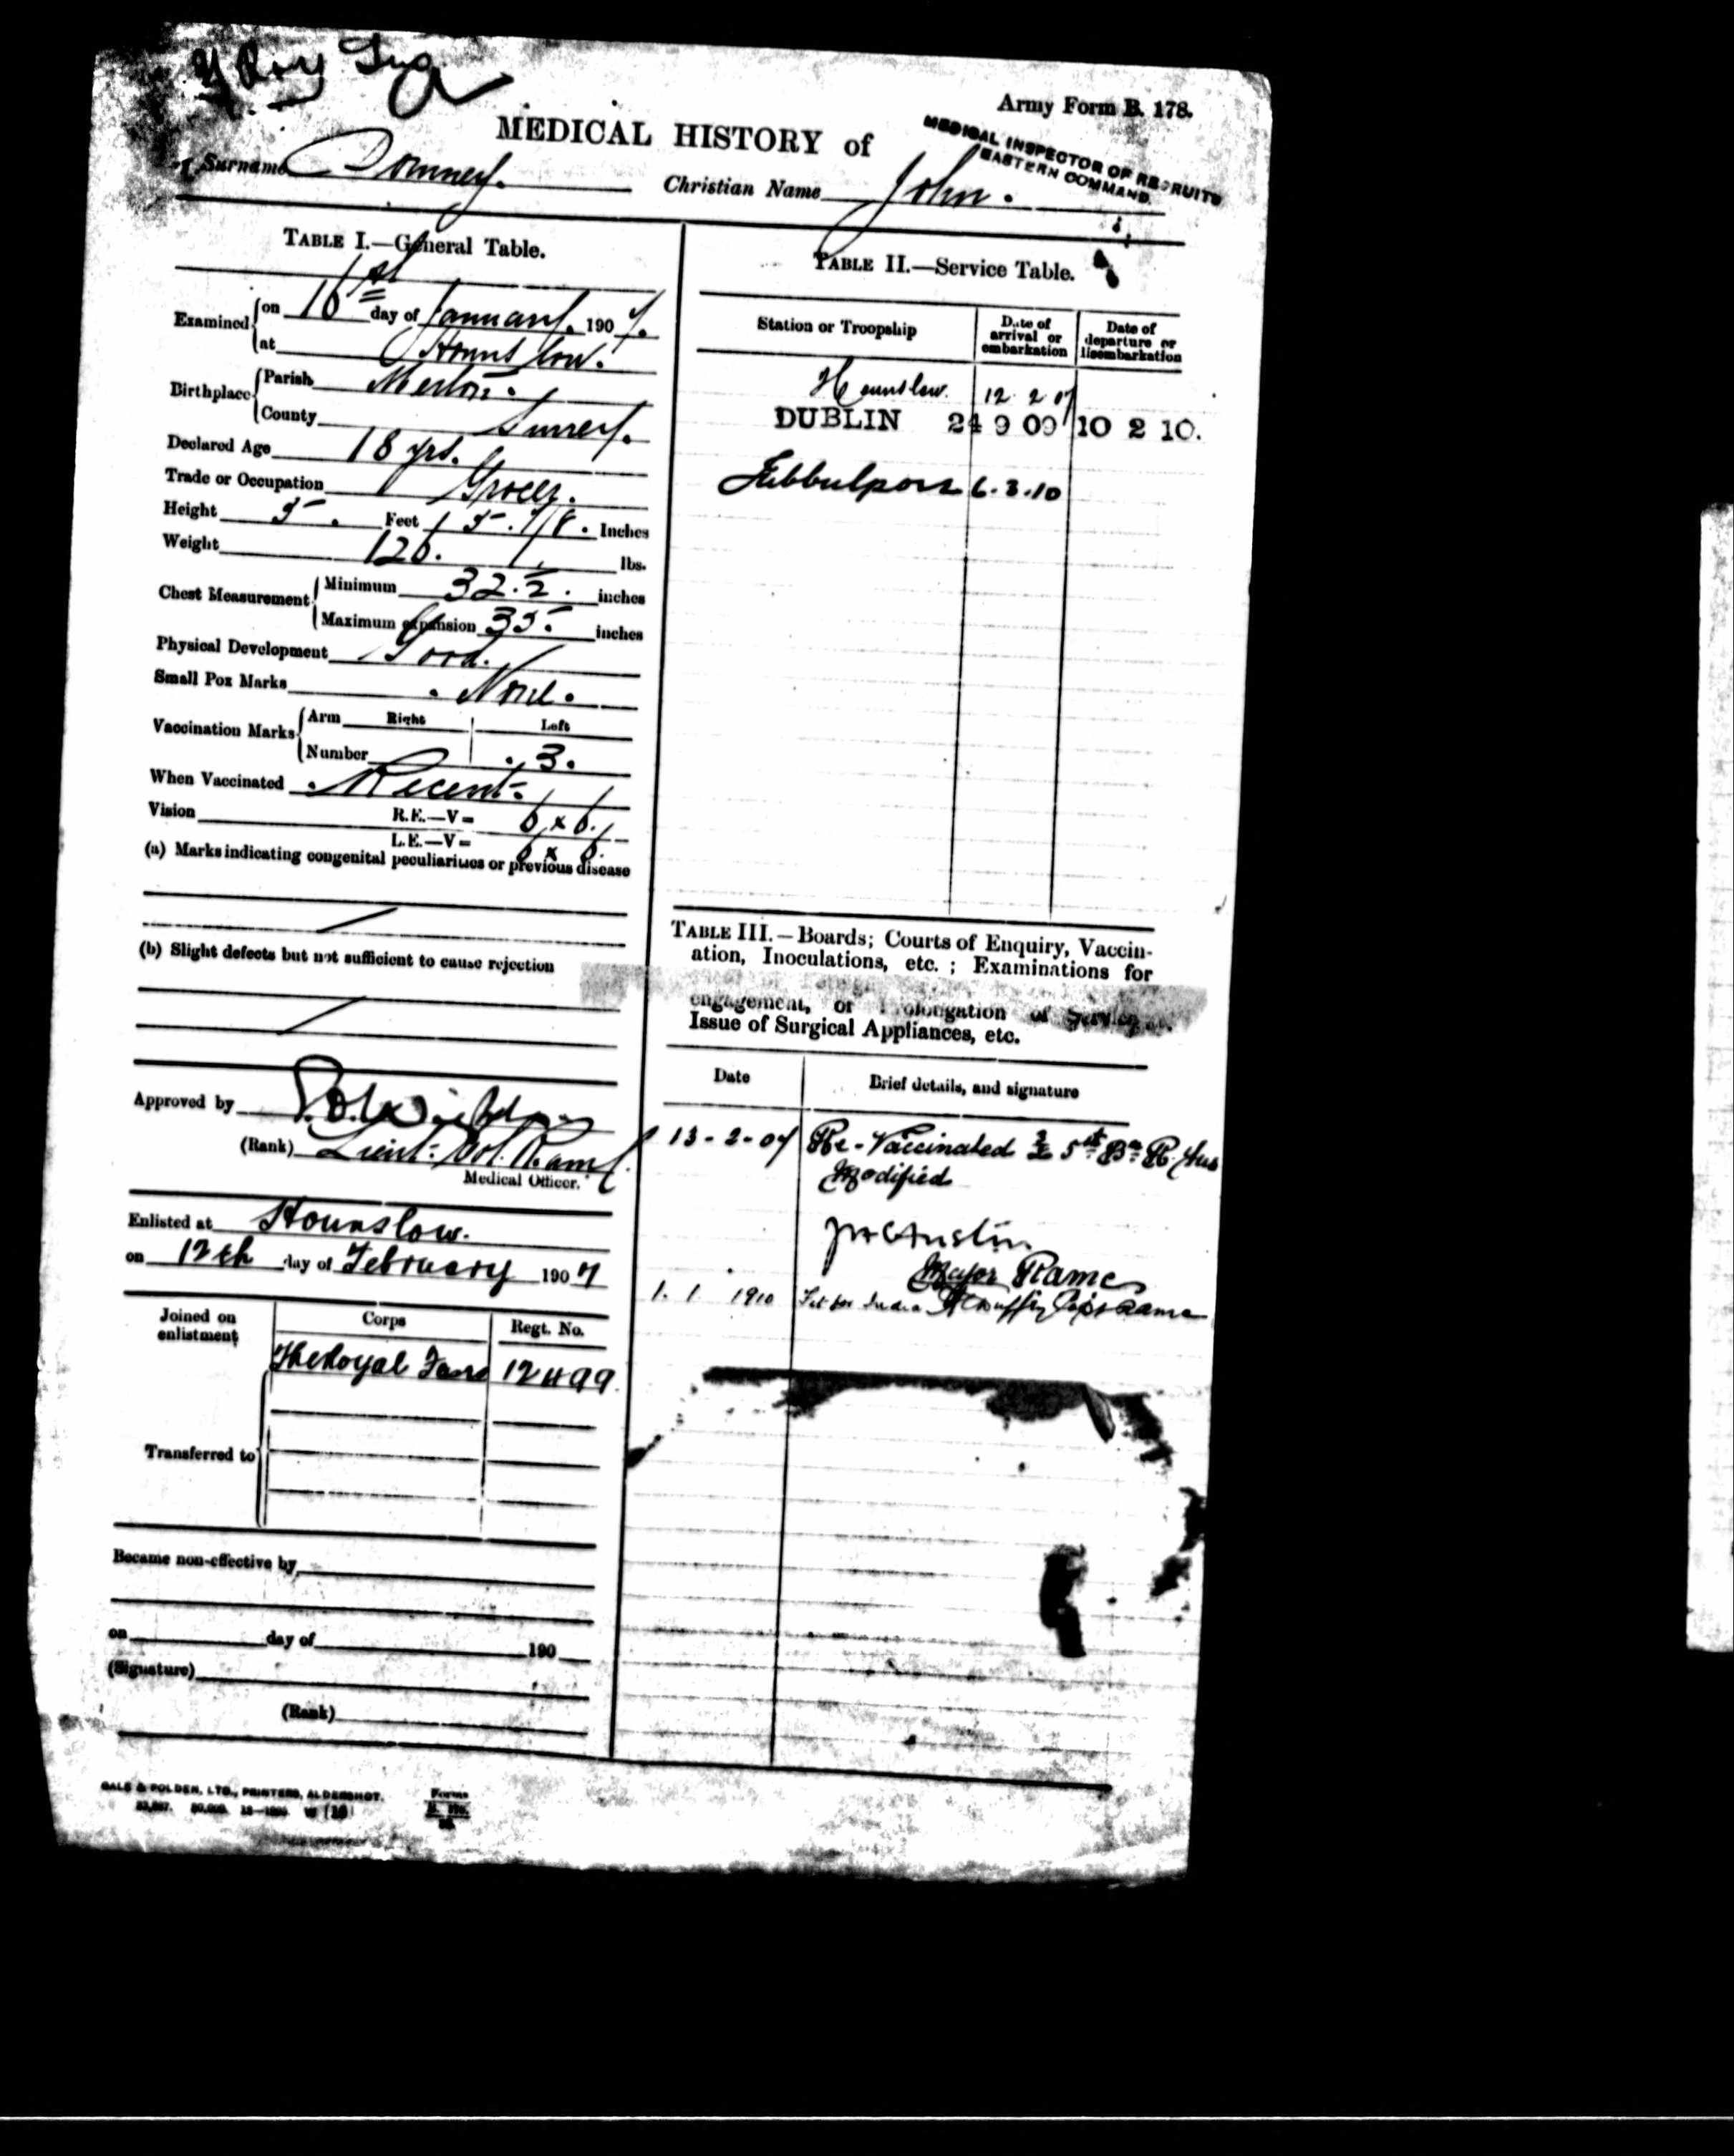 Army Form B. 178.
MEDICAL HISTORY of
MEDICAL INSPECTOR OF RECRUITS
EASTERN COMMAND.
Surname Christian Name John.
TABLE I.—General Table.
Examined on 16 day of January. 1907.
at Hounslow.
Birthplace Parish Merton.
County Surrey.
Declared Age 18 yrs.
Trade or Occupation Grocer.
Height 5. Feet 5. 7/8. Inches
Weight 126. lbs.
Chest Measurement Minimum 32.½. inches
Maximum expansion 35. inches
Physical Development Good.
Small Pox Marks None.
Vaccination Marks Arm Right Left
Number 3.
When Vaccinated Recent.
Vision R.E.—V= 6 x 6.
L.E.—V= 6 x 6.
(a) Marks indicating congenital peculiarities or previous disease
(b) Slight defects but not sufficient to cause rejection
Approved by
(Rank) Lieut: Col. Ramc.
Medical Officer.
Enlisted at Hounslow.
on 12th day of February 1907
Joined on enlistment Corps Regt. No.
The Royal Fus 12499.
Transferred to
Became non-effective by
on day of 190
(Signature)
(Rank)
GALE & POLDEN, LTD., PRINTERS, ALDERSHOT.
Forms
TABLE II.—Service Table.
Station or Troopship Date of arrival or embarkation Date of departure or disembarkation
Hounslow. 12 2 07
DUBLIN 24 9 09 10 2 10.
Jubbulpore 6.3.10
TABLE III.—Boards; Courts of Enquiry, Vaccin-
ation, Inoculations, etc.; Examinations for
engagement, or Prolongation of Service,
Issue of Surgical Appliances, etc.
Date Brief details, and signature
13-2-07 Re-Vaccinated 5th Bn R. Fus
Modified
Austin
Major Ramc
1. 1 1910 Fit for India Duffy Capt Ramc